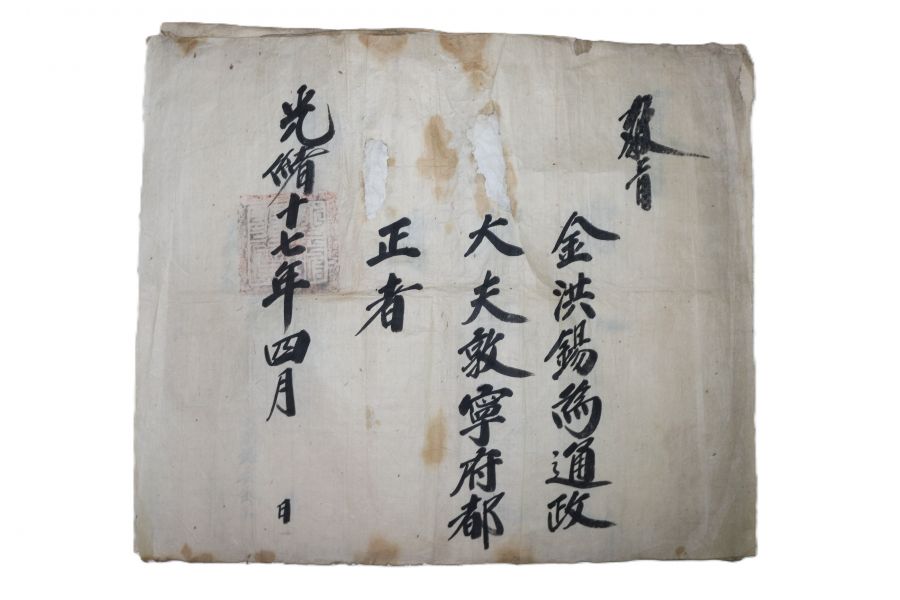 敎旨
金洪錫爲通政
大夫敦寧府都
正者
光緖十七年四月　日